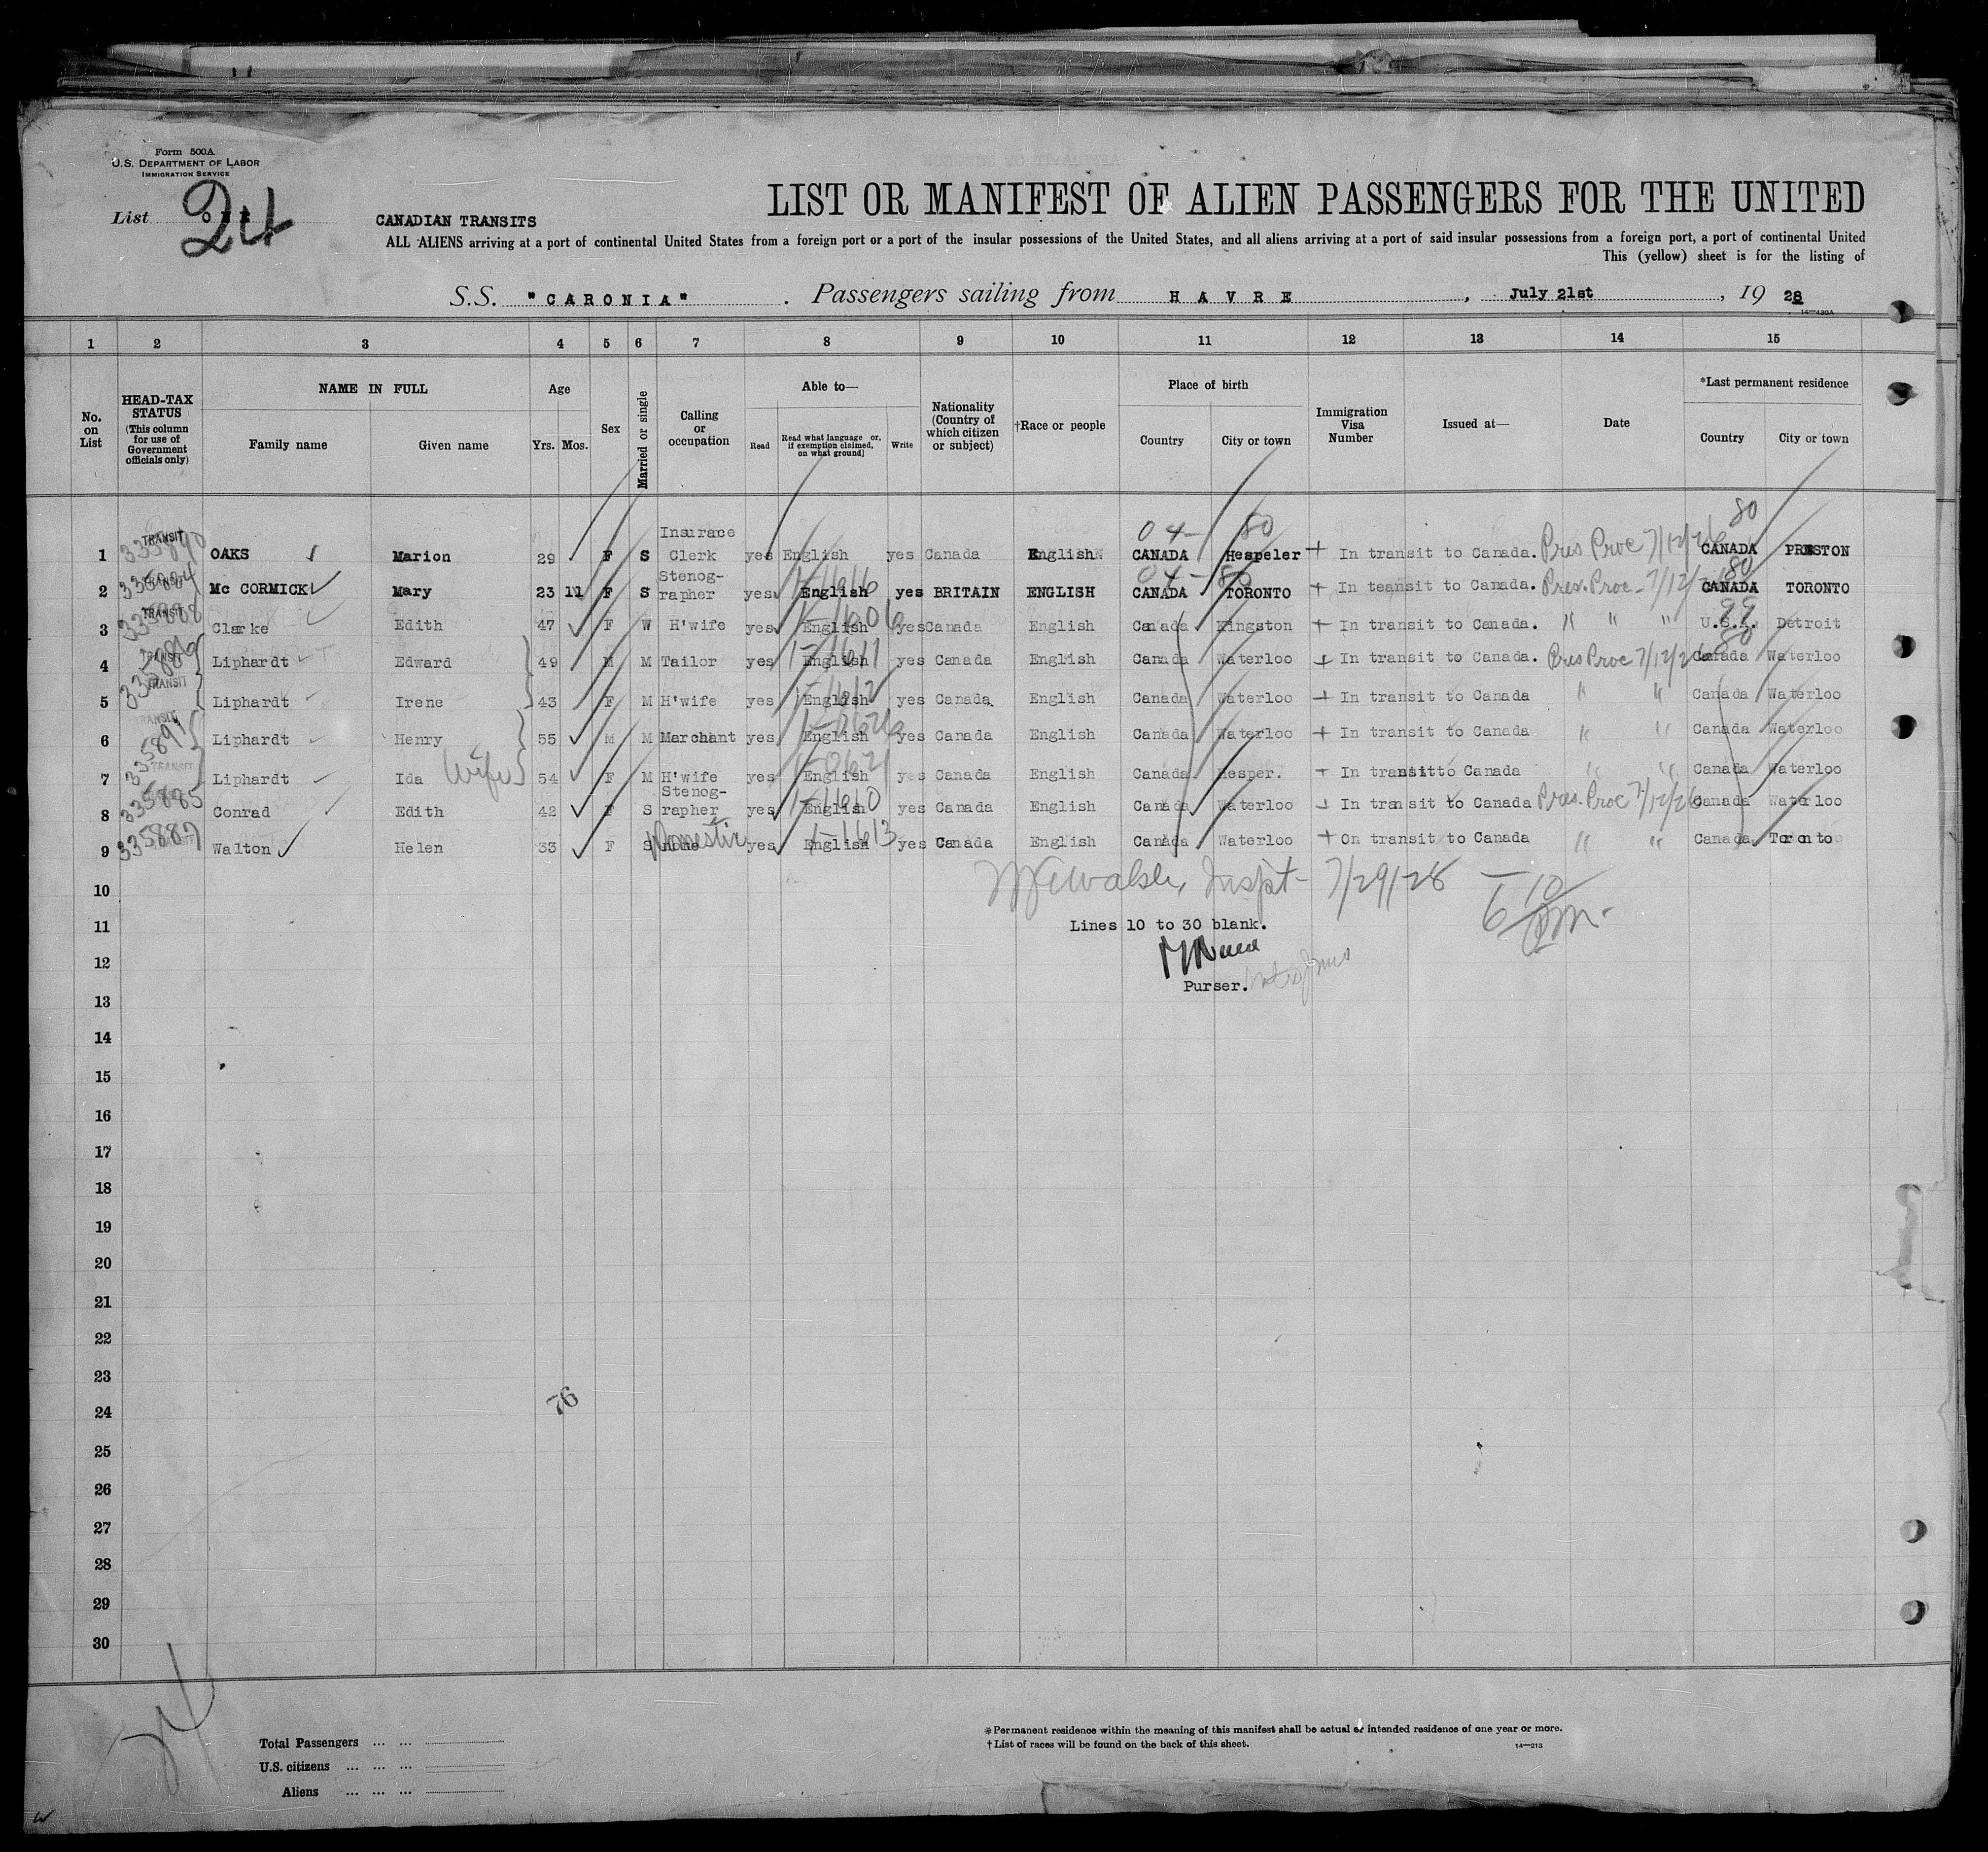 Form 500A
U.S. DEPARTMENT OF LABOR
IMMIGRATION SERVICE
List 24
CANADIAN TRANSITS
LIST OR MANIFEST OF ALIEN PASSENGERS FOR THE UNITED
ALL ALIENS arriving at a port of continental United States from a foreign port or a port of the insular possessions of the United States, and all aliens arriving at a port of said insular possessions from a foreign port, a port of continental United
This (yellow) sheet is for the listing of
S.S. "CARONIA" . Passengers sailing from HAVRE , July 21st , 19 28
14—430A
1 2 3 4 5 6 7 8 9 10 11 12 13 14 15
No. on List
HEAD-TAX STATUS (This column for use of Government officials only)
NAME IN FULL Family name Given name
Age Yrs. Mos.
Sex
Married or single
Calling or occupation
Able to— Read Read what language or, if exemption claimed, on what ground] Write
Nationality (Country of which citizen or subject)
†Race or people
Place of birth Country City or town
Immigration Visa Number
Issued at—
Date
*Last permanent residence Country City or town
04- 80 80
1 TRANSIT 335890 OAKS Marion 29 F S Insurace Clerk yes English yes Canada English CANADA Hespeler + In transit to Canada. Pres Proc 7/12/26 CANADA PRESTON
04-80 80
2 TRANSIT 335884 Mc CORMICK Mary 23 11 F S Stenog-rapher yes 1-1616 English yes BRITAIN ENGLISH CANADA TORONTO + In teansit to Canada. Pres. Proc- 7/12/ CANADA TORONTO
3 TRANSIT 335888 Clarke Edith 47 F W H'wife yes 1-1606 English yes Canada English Canada Kingston + In transit to Canada. " " " 99 U.S.A. Detroit
4 TRANSIT 335886 { Liphardt Edward } 49 M M Tailor yes 1-1611 English yes Canada English Canada Waterloo + In transit to Canada. Pres Proc 7/12/26 80 Canada Waterloo
5 TRANSIT Liphardt Irene 43 F M H'wife yes 1-1612 English yes Canada. English Canada Waterloo + In transit to Canada " " Canada Waterloo
6 TRANSIT 335891 { Liphardt Henry } 55 M M Marchant yes English yes Canada English Canada Waterloo + In transit to Canada " " Canada Waterloo
7 TRANSIT Liphardt Ida (Wife) 54 F M H'wife yes 1-0621 English yes Canada English Canada Hesper. + In transitto Canada " " Canada Waterloo
8 335885 Conrad Edith 42 F S Stenog-rapher yes 1-1610 English yes Canada English Canada Waterloo + In transit to Canada Pres. Proc 7/12/26 Canada Waterloo
9 335887 TRANSIT Walton Helen 33 F S none Domestic yes 1-1613 English yes Canada English Canada Waterloo + On transit to Canada " " Canada Toronto
10 Walsh, Inspt- 7/29/28 — 6 10/pm.
11 Lines 10 to 30 blank.
12
13 Purser.
14
15
16
17
18
19
20
21
22
23
76
24
25
26
27
28
29
30
24
Total Passengers ... ...
U.S. citizens ... ... ...
Aliens ... ... ...
*Permanent residence within the meaning of this manifest shall be actual or intended residence of one year or more.
†List of races will be found on the back of this sheet.
14—213
W